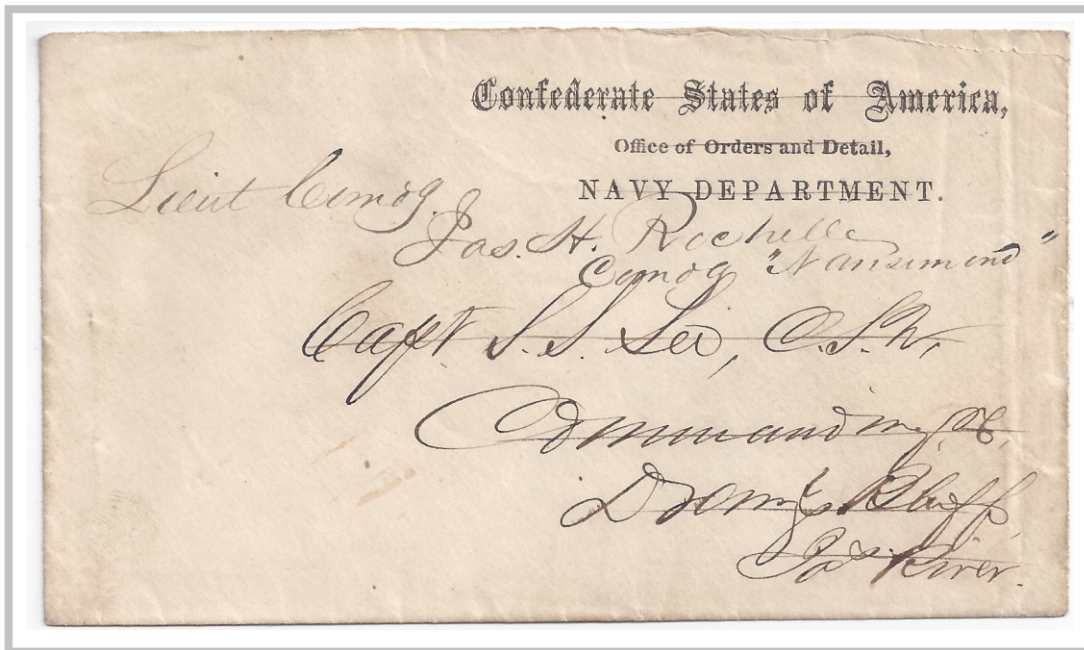 Confederate States of America,
Office of Orders and Detail,
NAVY DEPARTMENT.
Lieut Comdg.
Jas. H. Rochelle
Comdg "Nansemond"
Capt S. S. Lee, C.S.N.
Commanding &c.
Drewry's Bluff,
Jas. River.